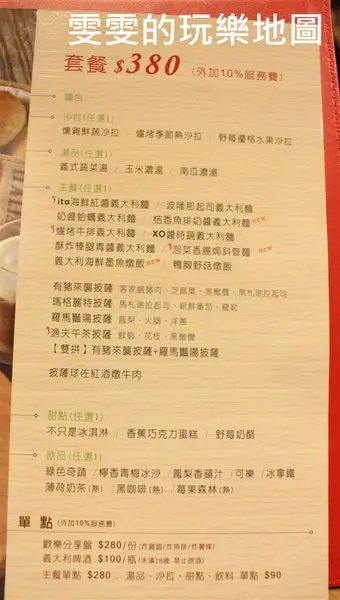 雯雯的玩樂地圖
套餐 $380 (外加10%服務費)
麵包
沙拉(任選1)
燻雞鮮蔬沙拉 / 爐烤季節熱沙拉 / 野莓優格水果沙拉
湯品(任選1)
義式蔬菜湯 / 玉米濃湯 / 南瓜濃湯
主餐(任選1)
ita海鮮紅醬義大利麵 / 波隆那起司義大利麵
奶醬蛤蠣義大利麵 / 桔香魚排奶醬義大利麵 new
爐烤牛排義大利麵 / XO醬時蔬義大利麵
酥炸棒腿青醬義大利麵 / 泡菜香腸焗斜管麵 new
義大利海鮮墨魚燉飯 new / 鴨胸野菇燉飯
有豬來襲披薩 / 客家鹹豬肉、芝麻葉、黑橄欖、馬札瑞拉起司
瑪格麗特披薩 / 馬札瑞拉起司、新鮮番茄、羅勒
羅馬豔陽披薩 / 鳳梨、火腿、洋蔥
漁夫午茶披薩 / 鮮蝦、花枝、黑橄欖
【雙拼】有豬來襲披薩+羅馬豔陽披薩
披薩球佐紅酒燉牛肉
甜點(任選1)
不只是冰淇淋 / 香蕉巧克力蛋糕 / 野莓奶酪
飲品(任選1)
綠色奇蹟 / 檸香青梅冰沙 / 鳳梨香蘋汁 / 可樂 / 冰拿鐵
薄荷奶茶(熱) / 黑咖啡(熱) / 莓果森林(熱)
單點 (外加10%服務費)
歡樂分享盤 $280/份 (炸雞翅/炸魚排/炸薯條)
義大利啤酒 $100/瓶 (未滿18歲 禁止飲酒)
主餐單點 $280 . 湯品、沙拉、甜點、飲料 單點 $90